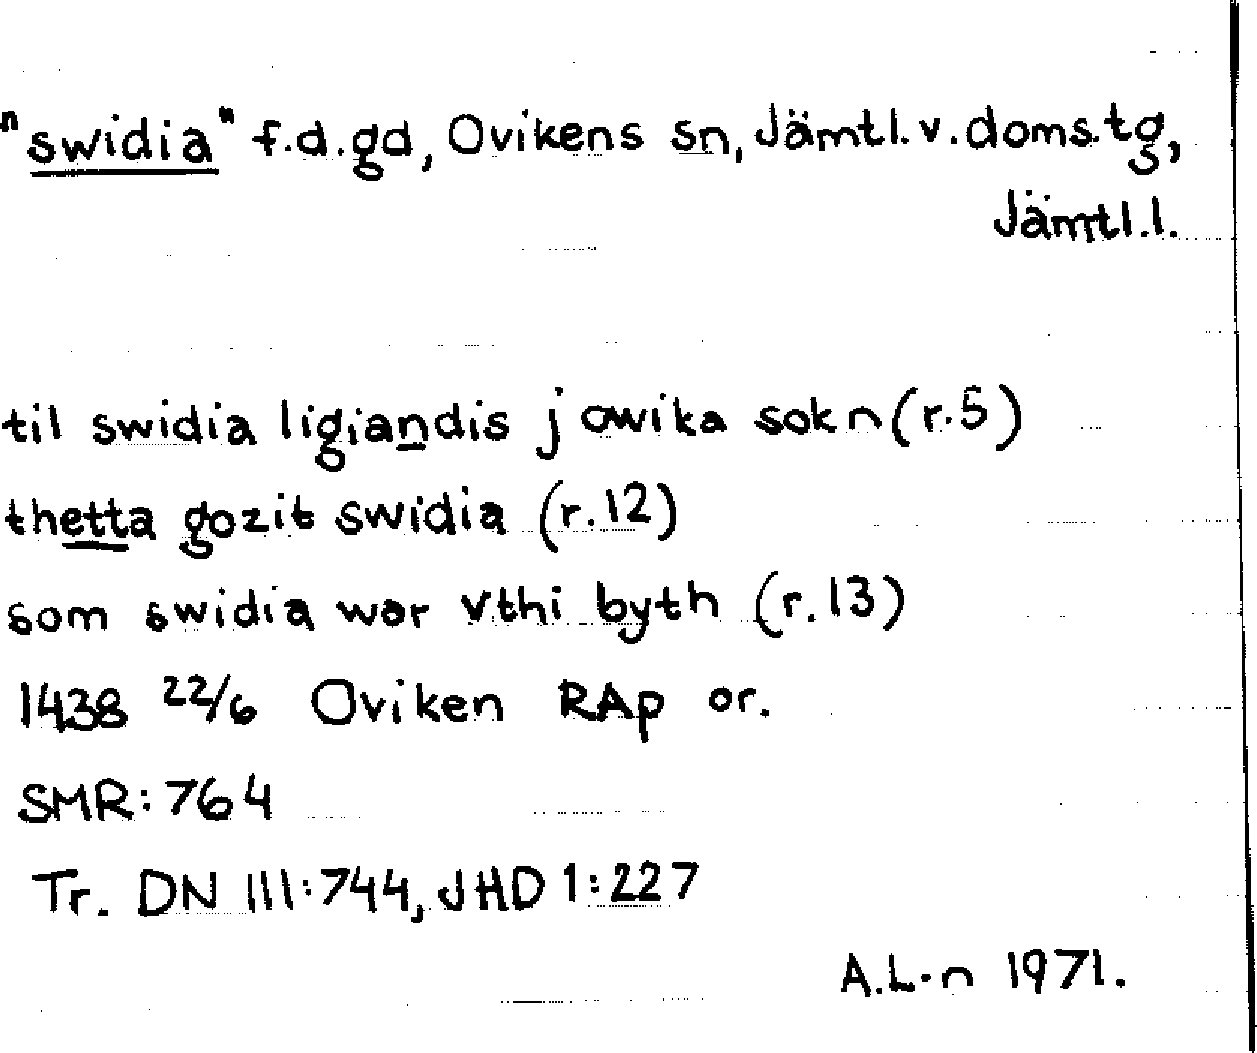 "swidia" f.d.gd, Ovikens sn, Jämtl.v.doms.tg,
Jämtl.l.
til swidia ligiandis j owika sokn (r.5)
thetta gozit swidia (r.12)
som swidia war vthi byth (r.13)
1438 22/6 Oviken RAp or.
SMR: 764
Tr. DN III:744, JHD 1:227
A.L-n 1971.